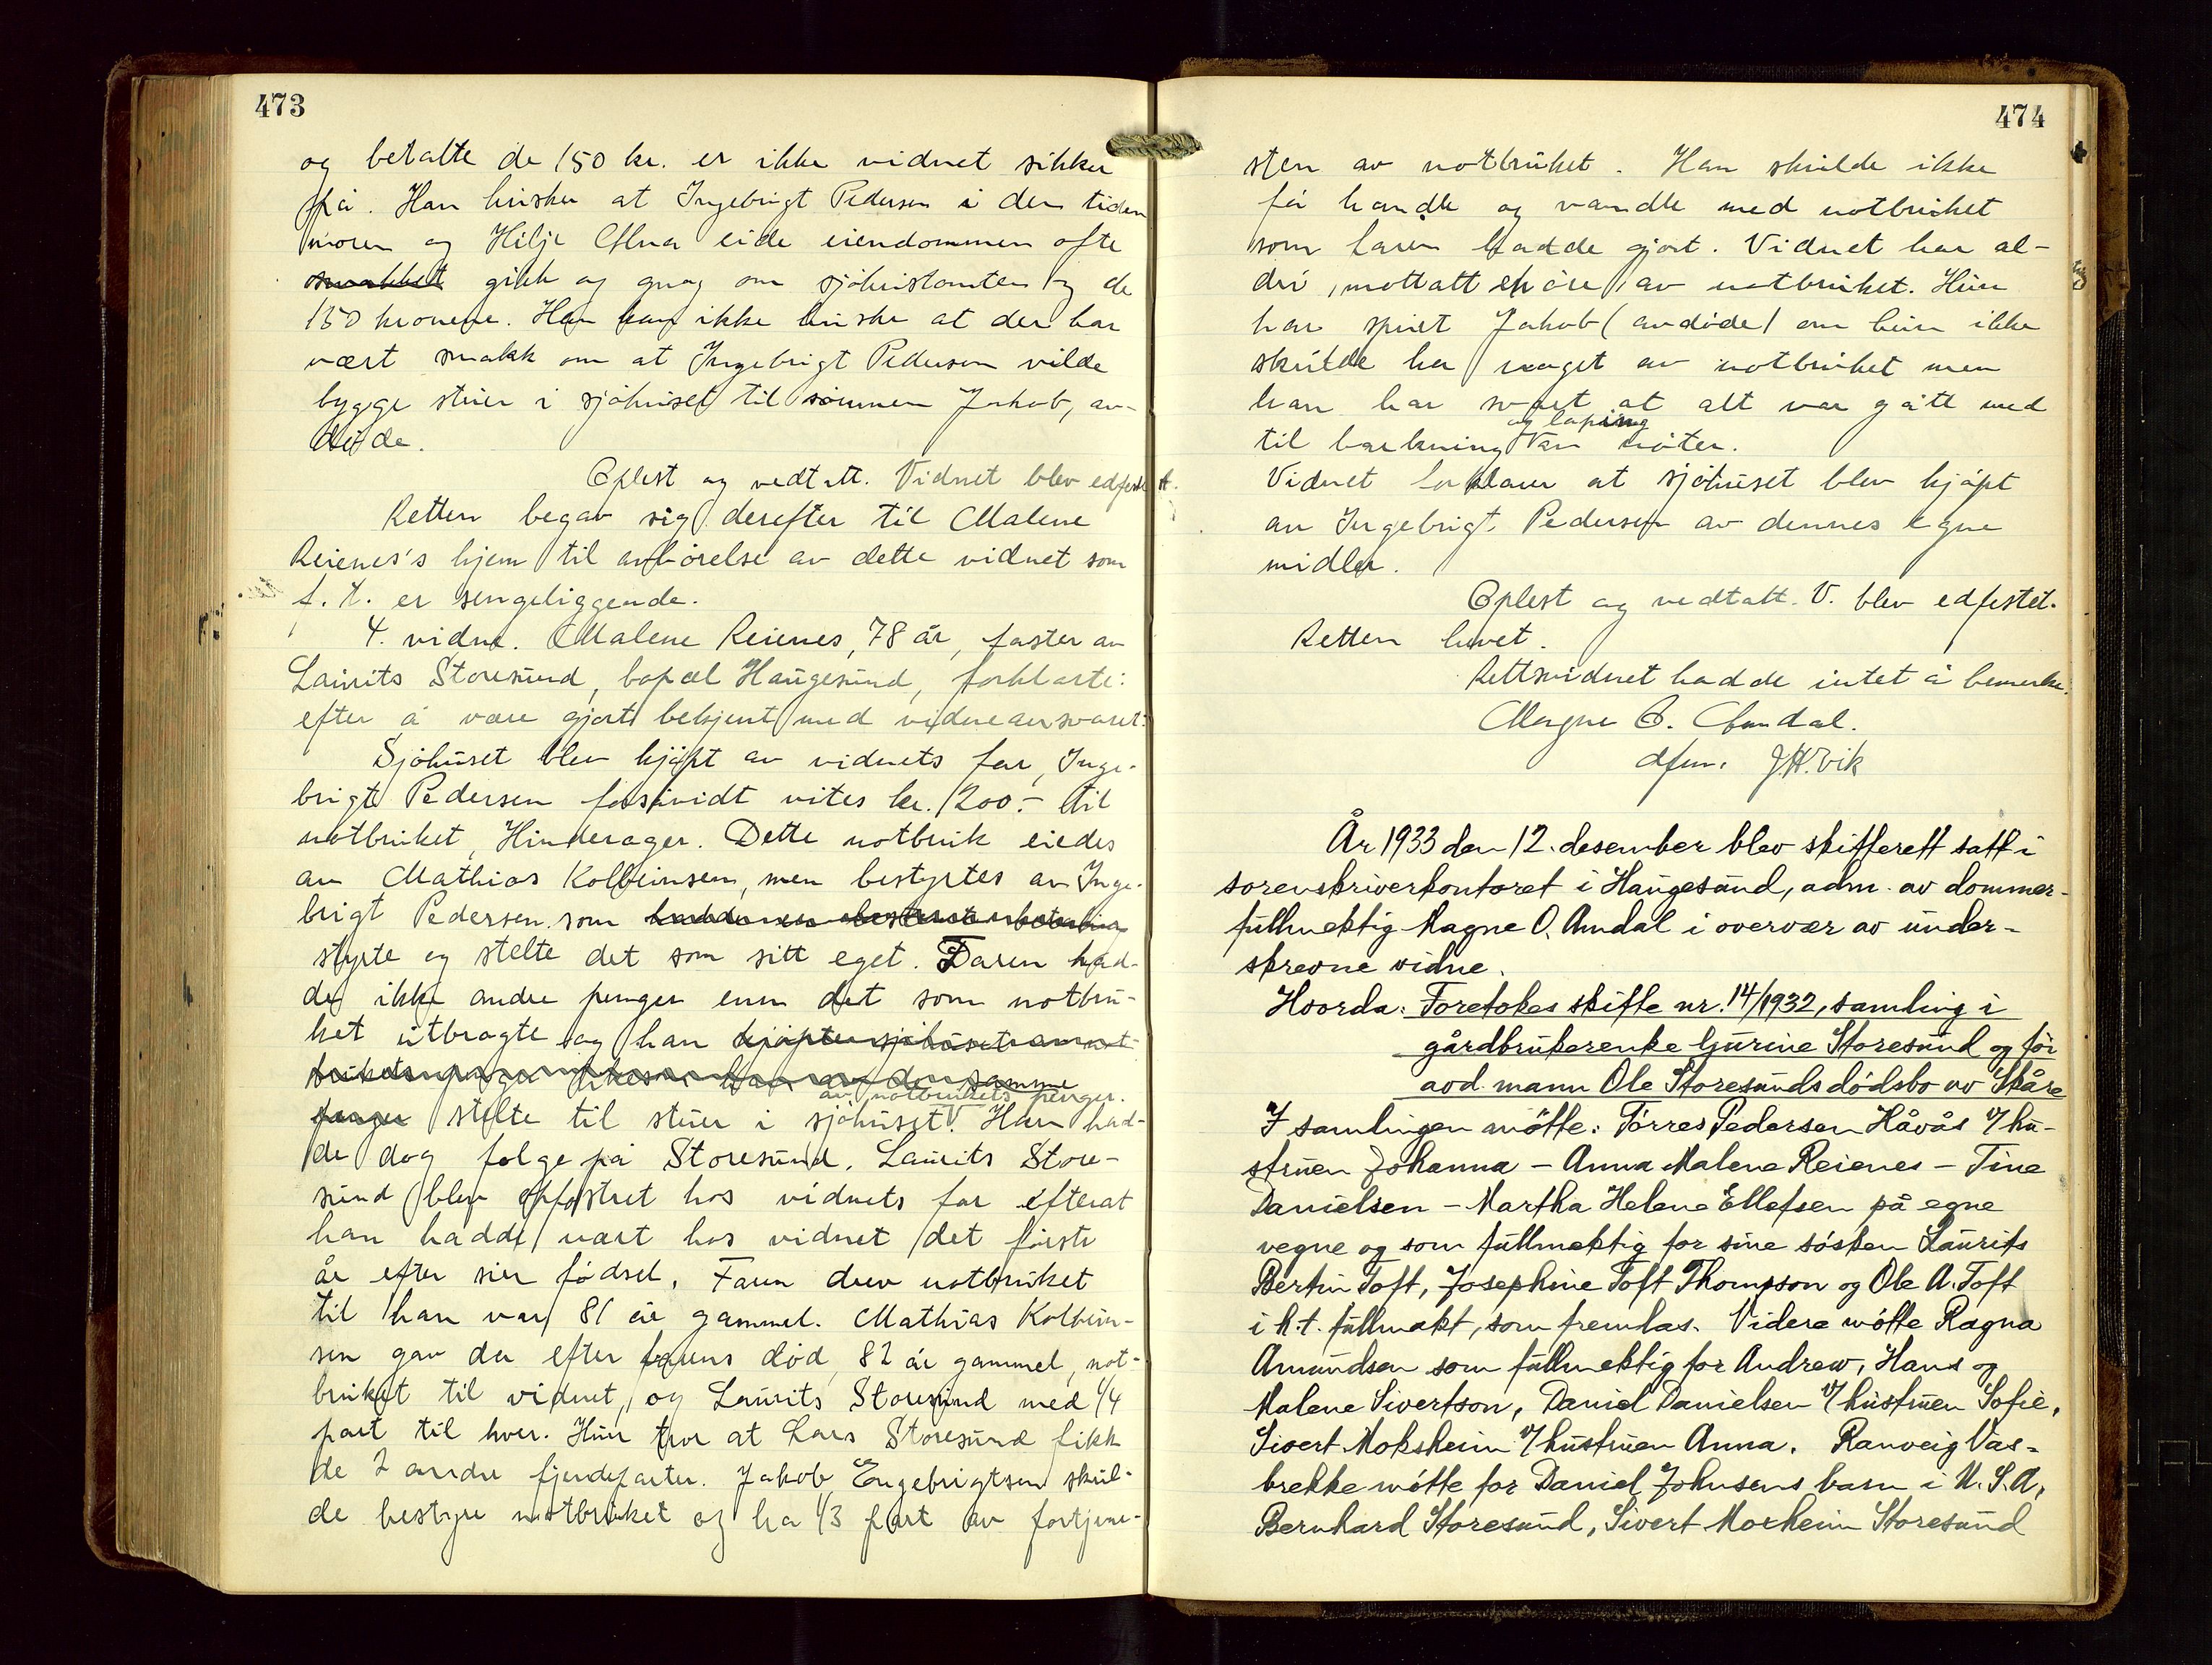 473
og betalte de 150 kr. er ikke vidnet sikker
på. Han husker at Ingebrigt Pedersen i den tiden
moren og Hilje Alna eide eiendommen ofte
snakket gikk og gnog om sjøhustomten og de
150 kronene. Han kan ikke huske at der har
vært snakk om at Ingebrigt Pedersen vilde
bygge stuer i sjøhuset til sønnen Jakob, av-
døde.
Oplest og vedtatt. Vidnet blev edfestet.
Retten begav sig derefter til Malene
Reienes's hjem til avhørelse av dette vidnet som
f. t. er sengeliggende.
4. vidne. Malene Reienes, 78 år, faster av
Laurits Storesund, bopæl Haugesund, forklarte:
efter å være gjort bekjent med vidneansvaret:
Sjøhuset blev kjøpt av vidnets far, Inge-
brigt Pedersen forsåvidt vites kr. 1200.- til
notbruket, Hinderager. Dette notbruk eiedes
av Mathias Kolbeinsen, men bestyrtes av Inge-
brigt Pedersen som
styrte og stelte det som sitt eget. Faren had-
de ikke andre penger enn det som notbru-
ket utbragte og han kjøpte sjøhuset av not-
brukets penger likesom han av de samme
penger stelte til stuer i sjøhuset av notbrukets penger. Han had-
de dog følge på Storesund. Laurits Store-
sund blev opfostret hos vidnets far efterat
han hadde vært hos vidnet det første
år efter sin fødsel. Faren drev notbruket
til han var 81 år gammel. Mathias Kolbein-
sen gav da efter farens død, 82 år gammel, not-
bruket til vidnet, og Laurits Storesund med 1/4
part til hver. Hun tror at Lars Storesund fikk
de 2 andre fjerdeparter. Jakob Engebrigtsen skul-
de bestyre notbruket og ha 1/3 part av fortjene-
474
sten av notbruket. Han skulde ikke
få handle og vandle med notbruket
som faren hadde gjort. Vidnet har al-
dri mottatt en øre av notbruket. Hun
har spurt Jakob (avdøde) om hun ikke
skulde ha noget av notbruket men
han har svart at alt var gått med
til barkning og laping av nøter.
Vidnet forklarer at sjøhuset blev kjøpt
av Ingebrigt Pedersen av dennes egne
midler.
Oplest og vedtatt. V. blev edfestet.
Retten hevet.
Rettsvidnet hadde intet å bemerke.
Magne O. Amdal.
dfm. J.H. Vik
År 1933 den 12. desember blev skifterett satt i
sorenskriverkontoret i Haugesund, adm. av dommer-
fullmektig Magne O. Amdal i overvær av under-
skrevne vidne.
Hvorda: Foretokes skifte nr. 14/1932, samling i
gårdbrukerenke Gurine Storesund og før
avd. mann Ole Storesunds dødsbo av Skåre
I samlingen møtte: Torres Pedersen Håvås v/ hu-
struen Johanna - Anna Malene Reienes - Tine
Danielsen - Martha Helene Ellefsen på egne
vegne og som fullmektig for sine søsken Laurits
Bertin Toft, Josephine Toft Thompson og Ole A. Toft
i h.t. fullmakt, som fremlas. Videre møtte Ragna
Amundsen som fullmektig for Andrew, Hans og
Malene Sivertson, Daniel Danielsen v/ hustruen Sofie,
Sivert Moksheim v/ hustruen Anna. Ranveig Vas-
brekke møtte for Daniel Johnsens barn i U.S.A.,
Bernhard Storesund, Sivert Moxheim Storesund